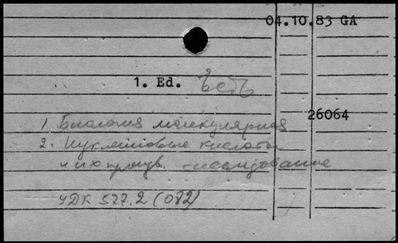 04.10.83 GA
1. Ed.
26064
1. Биология молекулярная
2. Нуклеиновые кислоты
и их произв. - исследование
УДК 577.2 (082)